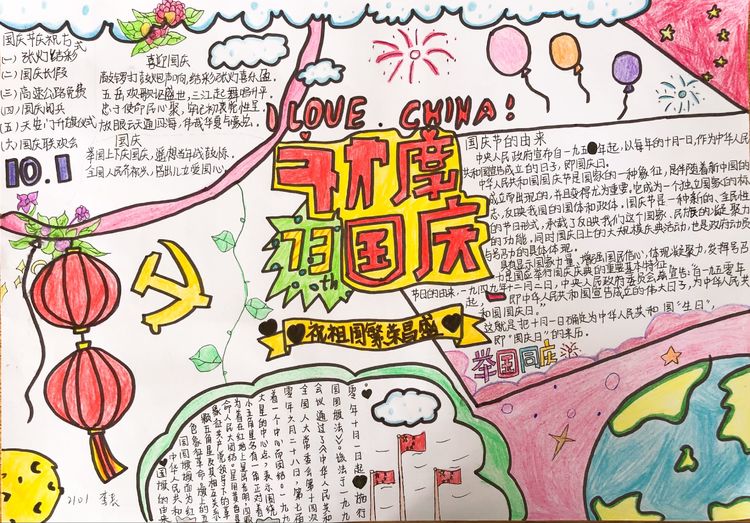 国庆节庆祝方式
(一) 张灯结彩
(二) 国庆长假
(三) 高速公路免费
(四) 国庆阅兵
(五) 天安门升旗仪式
(六) 国庆联欢会
10.1
喜迎国庆
敲锣打鼓炮声响,结彩张灯喜乐
五岳欢歌
三江起舞
国庆
举国上下庆国庆,遥想当年战鼓炼。
全国人民
I LOVE CHINA!
欢度
73th
国庆
祝祖国繁荣昌盛
国庆节的由来
中央人民政府宣布自一九五0年起,以每年的十月一日,作为中华人民
共和国宣告成立的日子,即国庆日。
中华人民共和国国庆节是国家的一种象征,是伴随着新中国的
成立而出现的,并且变得尤为重要。它成为一个独立国家的标
志,反映我国的国体和政体,国庆节是一种新的、全民性
的节日形式,承载了反映我们这个国家、民族的凝聚力
的功能,同时国庆日上的大规模庆典活动,也是政府动员
与号召力的具体体现。
具有显示国家力量,增强国民信心,体现凝聚力,发挥号召
力是国庆举行国庆庆典的重要基本特征。
节日的由来,一九四九年十二月二日,中央人民政府委员会宣告:自一九五零年
起,即中华人民共和国宣告成立的伟大日子,为中华人民共
和国国庆日。"
这就是把十月一日确定为中华人民共和国"生日",
即"国庆日"的来历。
举国同庆
国旗的由来
中华人民共和
零年十月一日起施行
国国旗法》。该法于一九九
会议通过了《中华人民共和
全国人大常委会第十四次
零年六月二十八日,第七届
2101